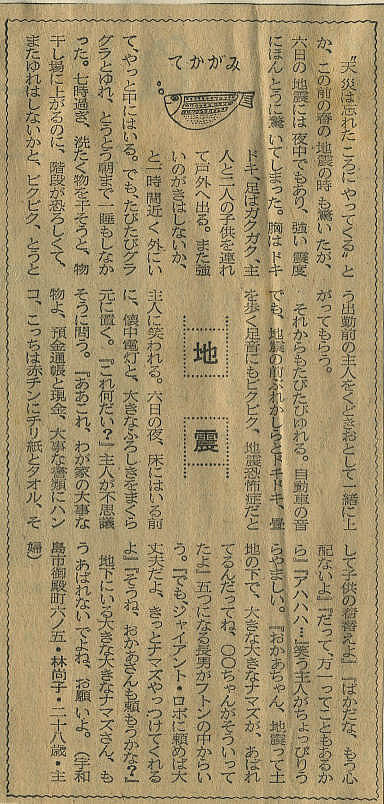 てかがみ
地震
〝天災は忘れたころにやってくる〟と
か、この前の春の地震の時も驚いたが、
六日の地震には夜中でもあり、強い震度
にほんとうに驚いてしまった。胸はドキ
ドキ、足はガクガク、主
人と二人の子供を連れ
て戸外へ出る。また強
いのがきはしないか、
と一時間近く外にい
て、やっと中にはいる。でも、たびたびグラ
グラとゆれ、とうとう朝まで一睡もしなか
った。七時過ぎ、洗たく物を干そうと、物
干し場に上がるのに、階段が恐ろしくて、
またゆれはしないかと、ビクビク、とうと
う出勤前の主人をくどきおとして一緒に上
がってもらう。
それからもたびたびゆれる。自動車の音
でも、地震の前ぶれかしらとドキドキ、畳
を歩く足音にもビクビク、地震恐怖症だと
主人に笑われる。六日の夜、床にはいる前
に、懐中電灯と、大きなふろしきをまくら
元に置く。『これ何だい?』主人が不思議
そうに問う。『ああこれ、わが家の大事な
物よ、預金通帳と現金、大事な書類にハン
コ、こっちは赤チンにチリ紙とタオル、そ
して子供の着替えよ』『ばかだな、もう心
配ないよ』『だって、万一ってこともあるか
ら』『アハハハ…』笑う主人がちょっぴりう
らやましい。『おかあちゃん、地震って土
地の下で、大きな大きなナマズが、あばれ
てるんだってね、〇〇ちゃんがそういって
たよ』五つになる長男がフトンの中からい
う。『でも、ジャイアント・ロボに頼めば大
丈夫だよ、きっとナマズやっつけてくれる
よ』『そうね、おかあさんも頼もうかな?』
地下にいる大きな大きなナマズさん、も
うあばれないでよね、お願いよ。(宇和
島市御殿町六ノ五・林尚子・二十八歳・主
婦)